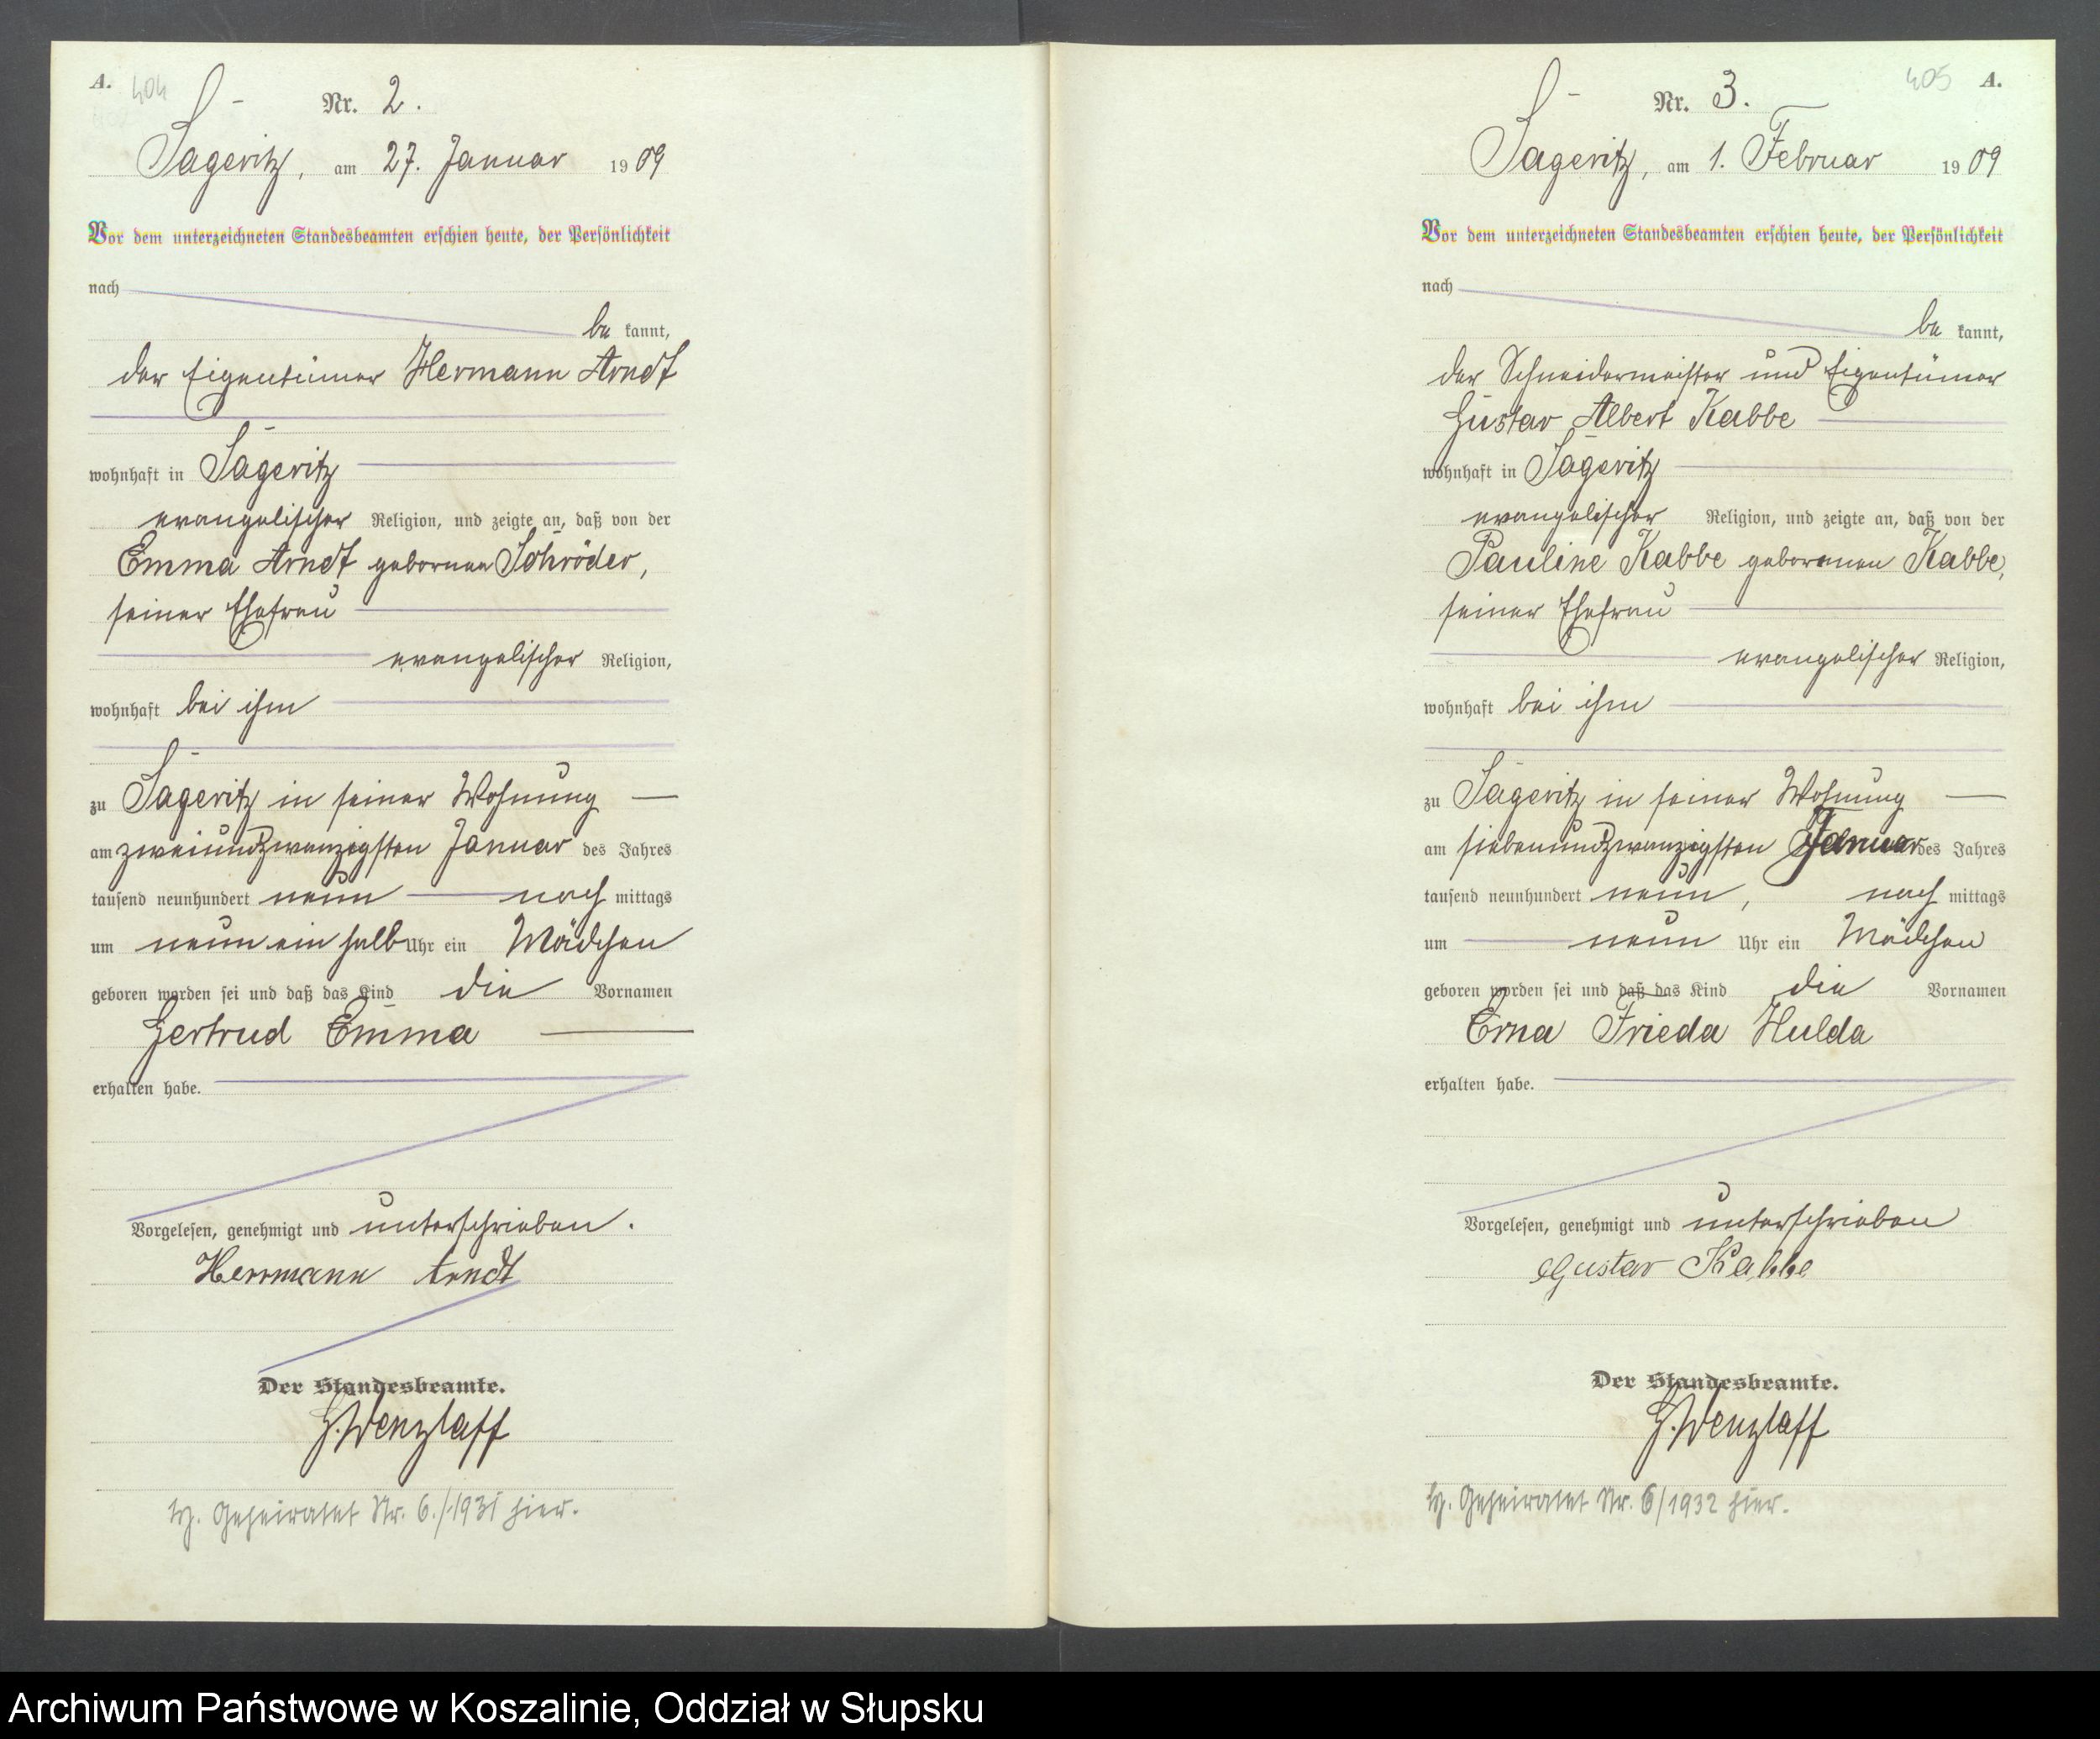 A.
404
Nr. 2.
Sageritz, am 27. Januar 1909
Vor dem unterzeichneten Standesbeamten erschien heute, der Persönlichkeit
nach
be kannt,
der Eigentümer Hermann Arndt
wohnhaft in Sageritz
evangelischer Religion, und zeigte an, daß von der
Emma Arndt geborenen Schröder,
seiner Ehefrau
evangelischer Religion,
wohnhaft bei ihm
zu Sageritz in seiner Wohnung
am zweiundzwanzigsten Januar des Jahres
tausend neunhundert neun nach mittags
um neun ein halb Uhr ein Mädchen
geboren worden sei und daß das Kind die Vornamen
Gertrud Emma
erhalten habe.
Vorgelesen, genehmigt und unterschrieben.
Herrmann Arndt
Der Standesbeamte.
G. Wenzlaff
Geheiratet Nr. 6./1931 hier.
405 A.
Nr. 3.
Sageritz, am 1. Februar 1909
Vor dem unterzeichneten Standesbeamten erschien heute, der Persönlichkeit
nach
be kannt,
der Schneidermeister und Eigentümer
Gustav Albert Kabbe
wohnhaft in Sageritz
evangelischer Religion, und zeigte an, daß von der
Pauline Kabbe geborenen Kabbe,
seiner Ehefrau
evangelischer Religion,
wohnhaft bei ihm
zu Sageritz in seiner Wohnung
am siebenundzwanzigsten Januar des Jahres
tausend neunhundert neun, nach mittags
um neun Uhr ein Mädchen
geboren worden sei und daß das Kind die Vornamen
Erna Frieda Hulda
erhalten habe.
Vorgelesen, genehmigt und unterschrieben
Gustav Kabbe
Der Standesbeamte.
G. Wenzlaff
Geheiratet Nr. 6/1932 hier.
Archiwum Państwowe w Koszalinie, Oddział w Słupsku